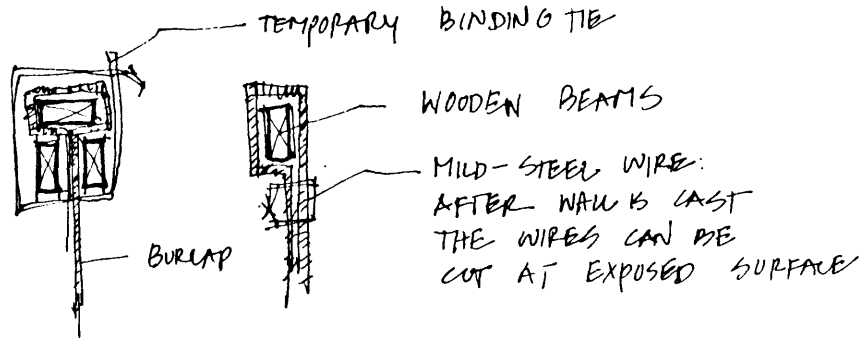 TEMPORARY BINDING TIE
WOODEN BEAMS
MILD-STEEL WIRE:
AFTER WALL IS CAST
THE WIRES CAN BE
CUT AT EXPOSED SURFACE
BURLAP